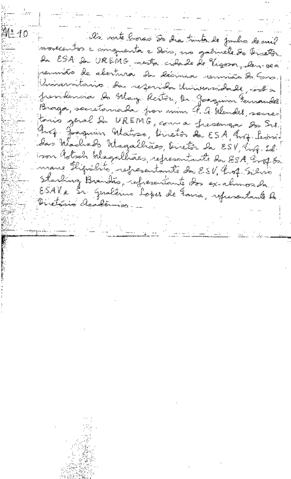 Nº 10
Às vinte horas do dia trinta de junho de mil
novecentos e cinquenta e dois, no gabinete do Diretor
da ESA da UREMG nesta cidade de Viçosa, deu-se a
reunião de abertura da décima reunião do Cons.
Universitário da referida Universidade, sob a
presidencia do Magº Reitor, Dr. Joaquim Fernandes
Braga, secretariada por mim P. A. Mendes, secre-
tario geral da UREMG, com a presença do Sr.
Prof. Joaquim Matoso, Diretor da ESA, Prof. Leoni-
das Machado Magalhães, Diretor da ESV, Prof. Ed-
son Potsch Magalhães, representante da ESA, Prof.
representante da ESV, Prof. Silvio
Starling Brandão, representante dos ex-alunos da
ESAV e Sr. Lopes de Faria, representante do
Diretório Acadêmico